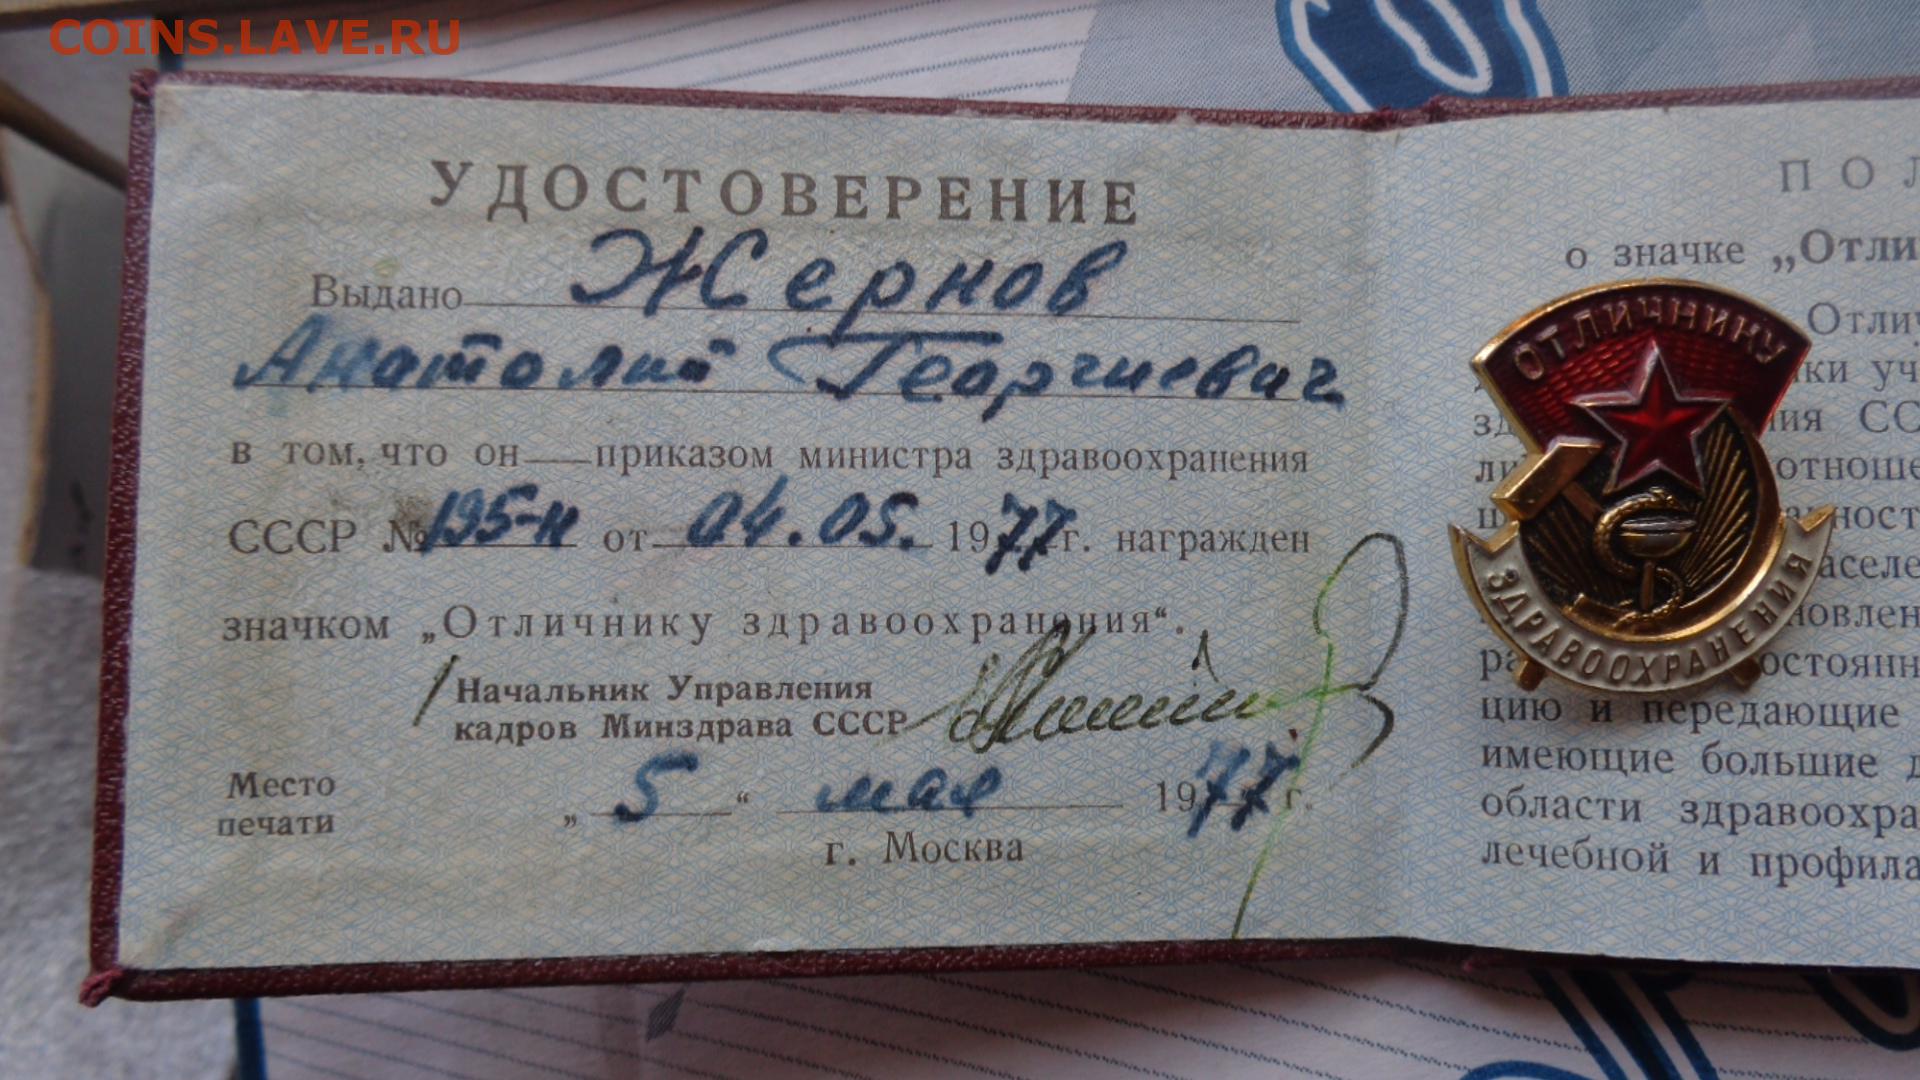 COINS.LAVE.RU
УДОСТОВЕРЕНИЕ
Выдано Жернов
Анатолий Георгиевич
в том, что он приказом министра здравоохранения
СССР № 195-н от 04.05. 1977 г. награжден
значком „Отличнику здравоохранения“.
Начальник Управления
кадров Минздрава СССР
Место
печати
„ 5 “ мая 1977 г.
г. Москва
ПОЛ
о значке „Отли
Отлич
ки уч
ния СС
отноше
ност
аселе
новлен
остоянн
цию и передающие
имеющие большие д
области здравоохра
лечебной и профила
ОТЛИЧНИКУ
ЗДРАВООХРАНЕНИЯ